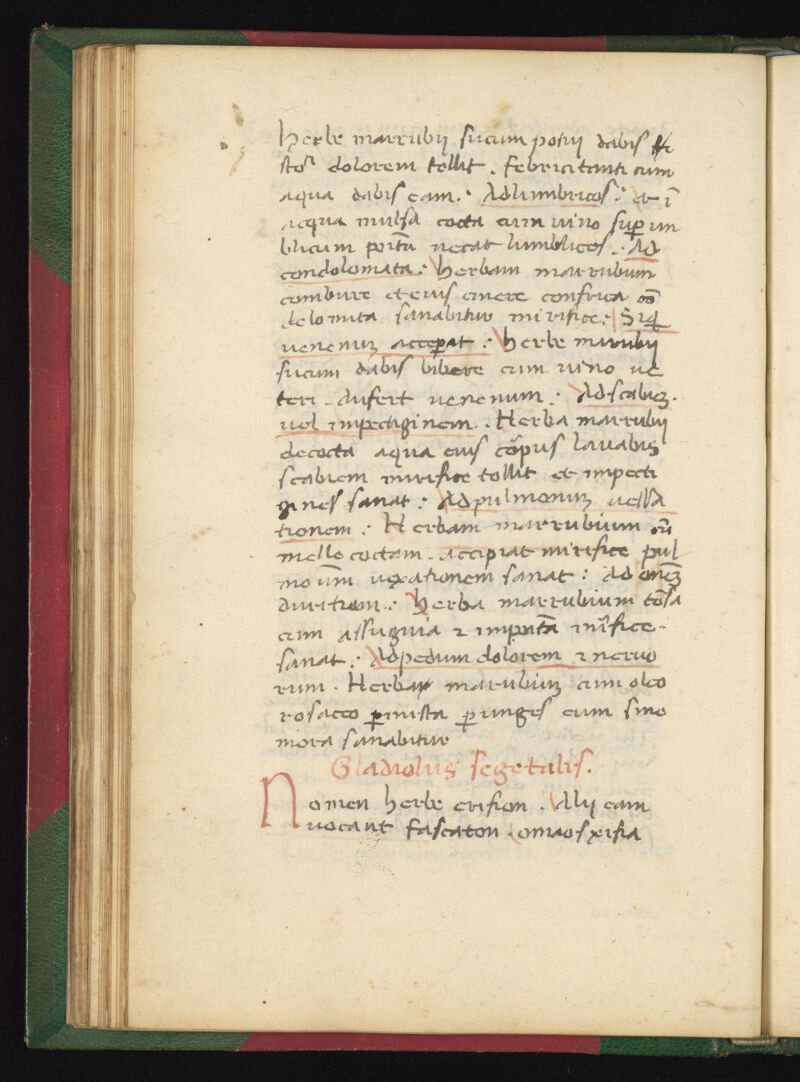 herbe marrubij sucum potui dabis
stoĩ dolorem tollit . febricitanti cum
aqua dabis eam . Ad lumbricos : et ĩ
acqua mulsa cocta cum uino sup um
blicum põita necat lumblicos . Ad
condolomata : herbam marrubium
combure et eius cinere confrica
delomita sanabitur mirifice : Siq̃
uenenuȝ acceperat : herbe marubij
sucum dabis bibere cum uino ue
teri . aufert uenenum : Ad scabieȝ .
uel impectiginem . Herba marrubij
decocta aqua eius corpus lauabis
scabiem mirifice tollit et impecti
gines sanat : Ad pulmonuȝ uessa
tionem : Herbam marrubium cũ
melle coctam . accipiat mirifice pul
monũm uexationem sanat : Ad omeȝ
duritiam : herba marrubium tõsa
cum assugnia ⁊ impoita mĩfice .
sanat : Ad pedum dolorem ⁊ neruo
rum . Herba marubiuȝ cum oleo
rosacco permista perunges cum sine
mora sanabitur
Gladiolus segetalis .
Nomen herbe erifion . Alij eam
uocant fascaton . omaos xifia